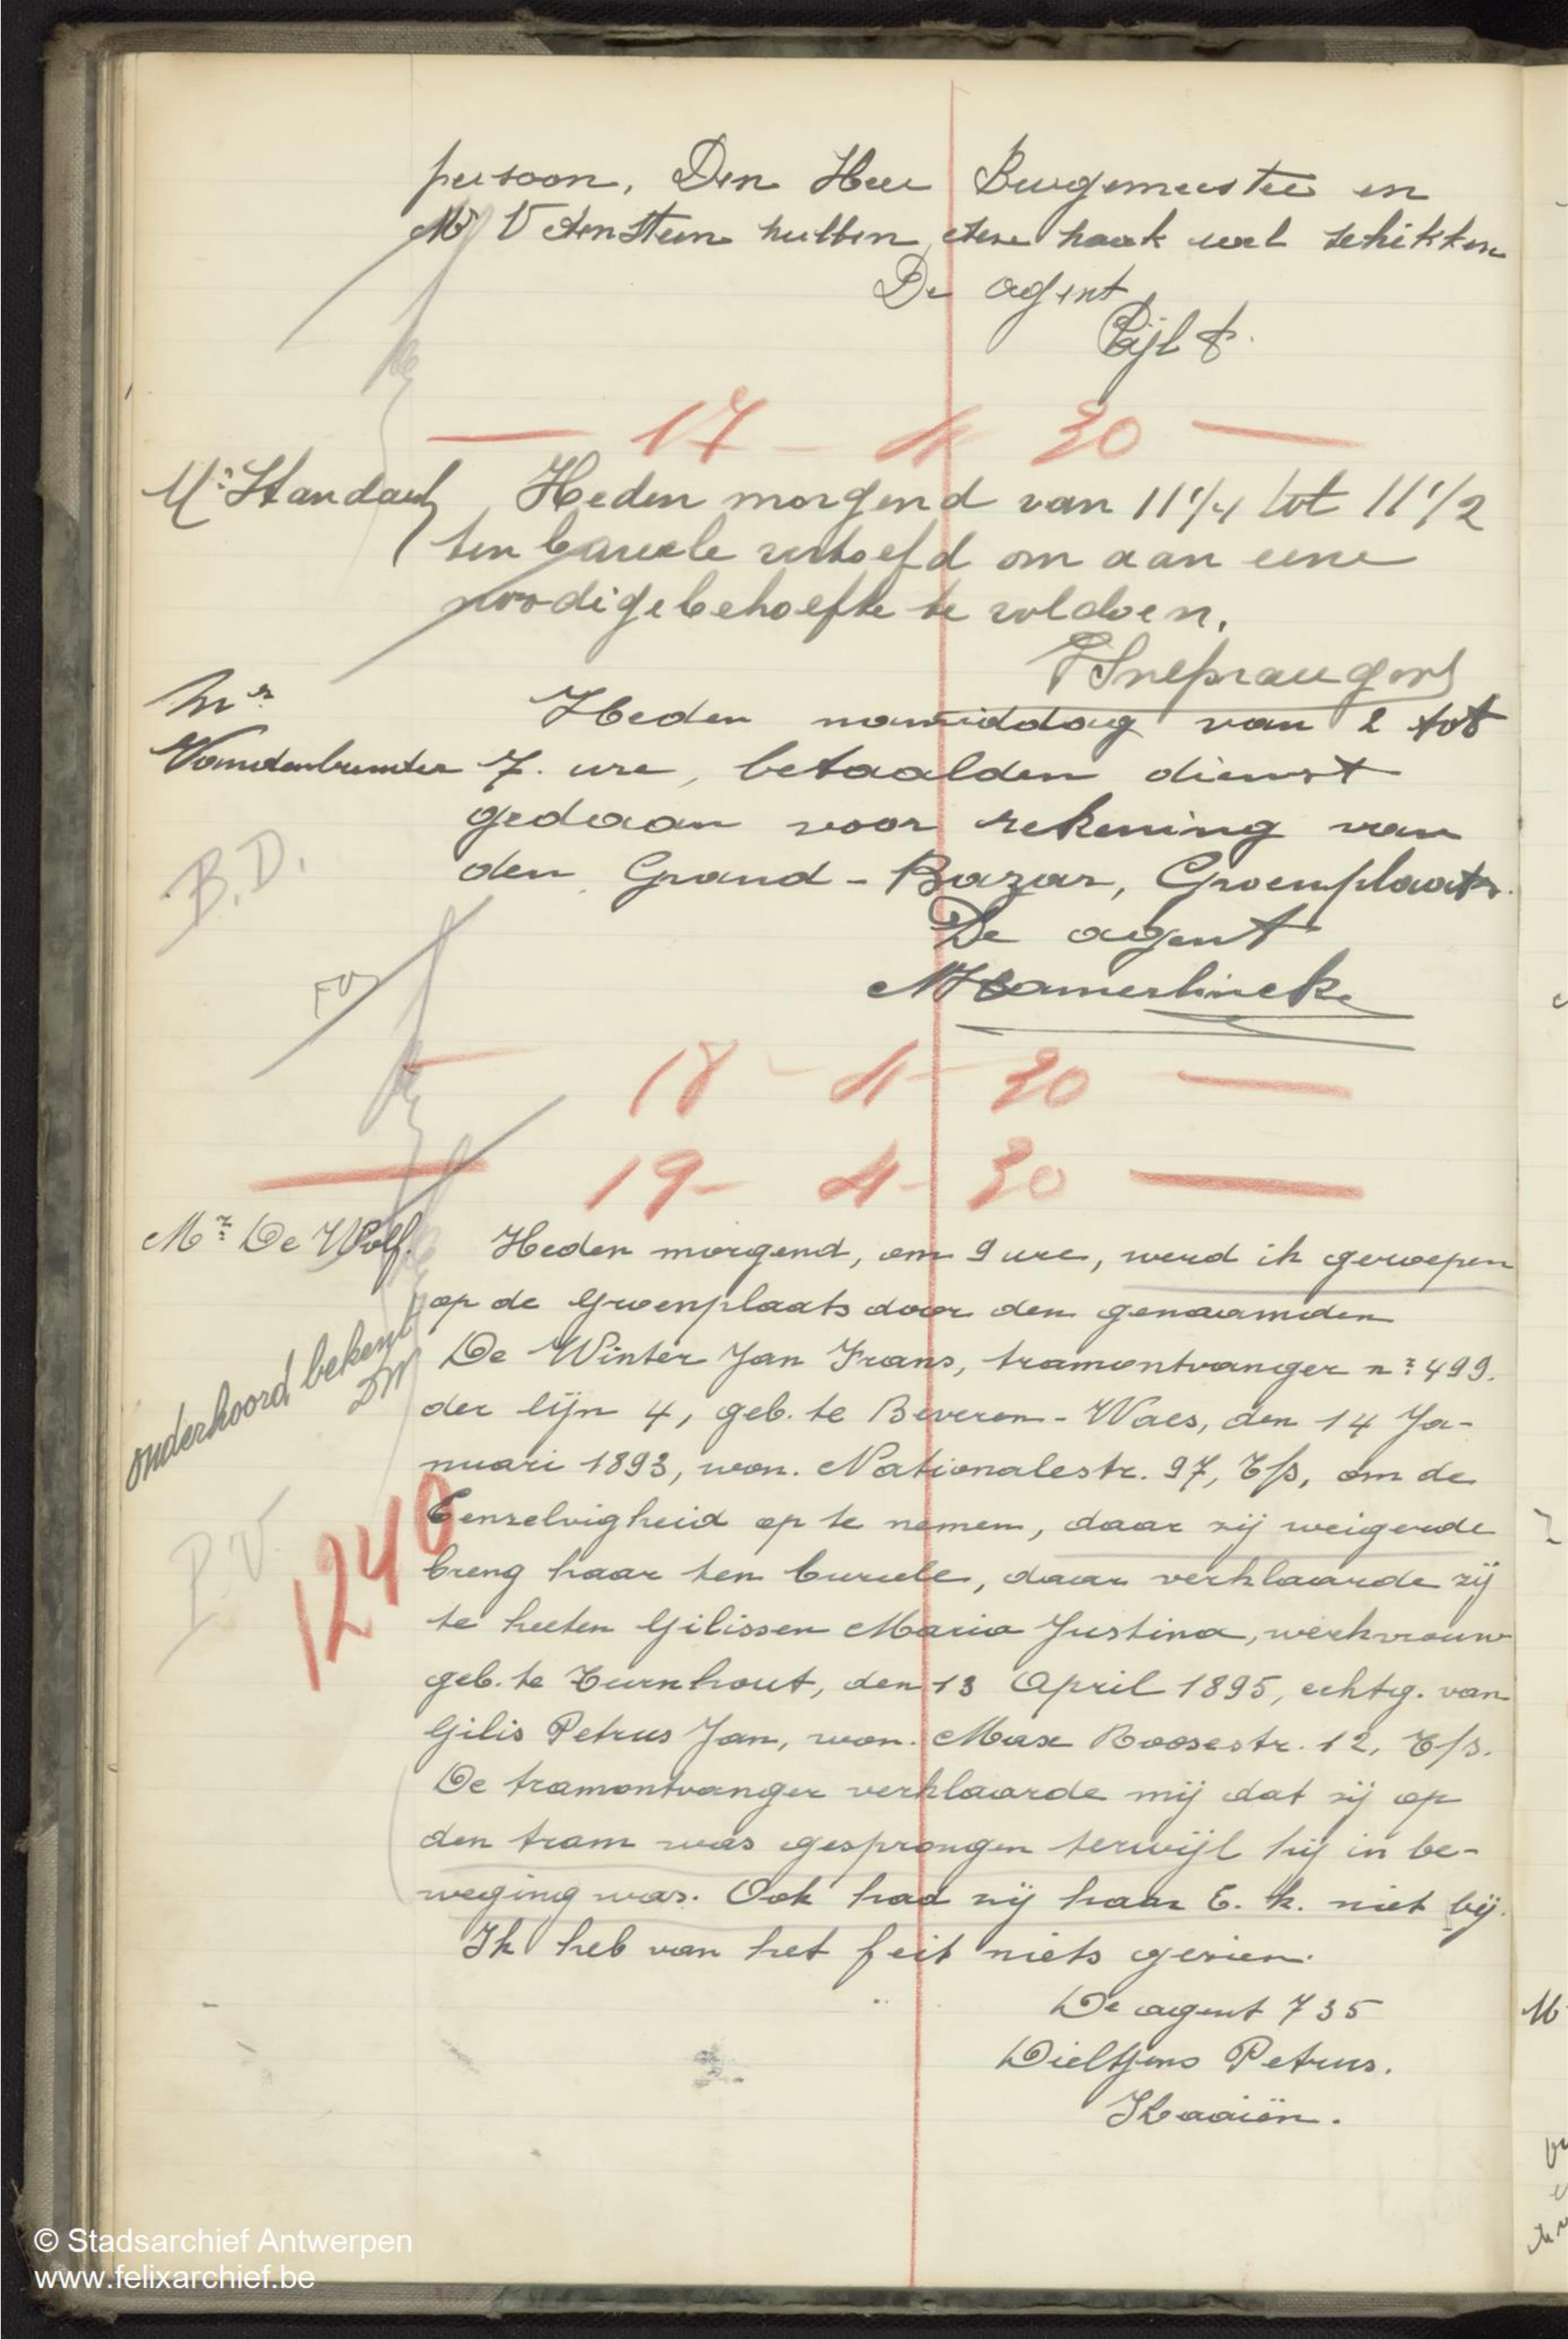 persoon, Den Heer Burgemeester en
Mr Van Steen hebben deze haak wel schikken
De agent
— 17 - 4 30 —
Mr Standaert Heden morgend van 11 1/4 tot 11 1/2
ten bureele vertoefd om aan eene
noodigebehoefte te voldoen.
Mr Heden namiddag van 2 tot
Vandenbemden 7. ure, betaalden dienst
gedaan voor rekening van
B.D. den Grand - Bazar, Groenplaats.
De agent
— 18 - 4 - 30 —
— 19 - 4 - 30 —
Mr De Wolf. Heden morgend, om 9 ure, werd ik geroepen
op de Groenplaats door den genaamden
onderhoord, bekent DW
De Winter Jan Frans, tramontvanger nr 499.
der lijn 4, geb. te Beveren - Waes, den 14 Ja-
nuari 1893, won. Nationalestr. 97, T/s, om de
P.V. 1240
Eenzelvigheid op te nemen, daar zij weigerde
breng haar ten bureele, daar verklaarde zij
te heeten Gilissen Maria Justina, werkvrouw
geb. te Turnhout, den 13 April 1895, echtg. van
Gilis Petrus Jan, won. Max Roosestr. 12, T/s.
De tramontvanger verklaarde mij dat zij op
den tram was gesprongen terwijl hij in be-
weging was. Ook had zij haar E. k. niet bij.
Ik heb van het feit niets gezien.
De agent 735
Dieltjens Petrus.
© Stadsarchief Antwerpen
www.felixarchief.be